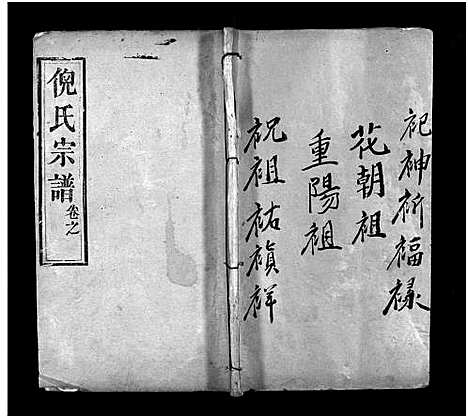 祀神祈福祿
花朝祖
重陽祖
祝祖祐禎祥
倪氏宗譜卷之